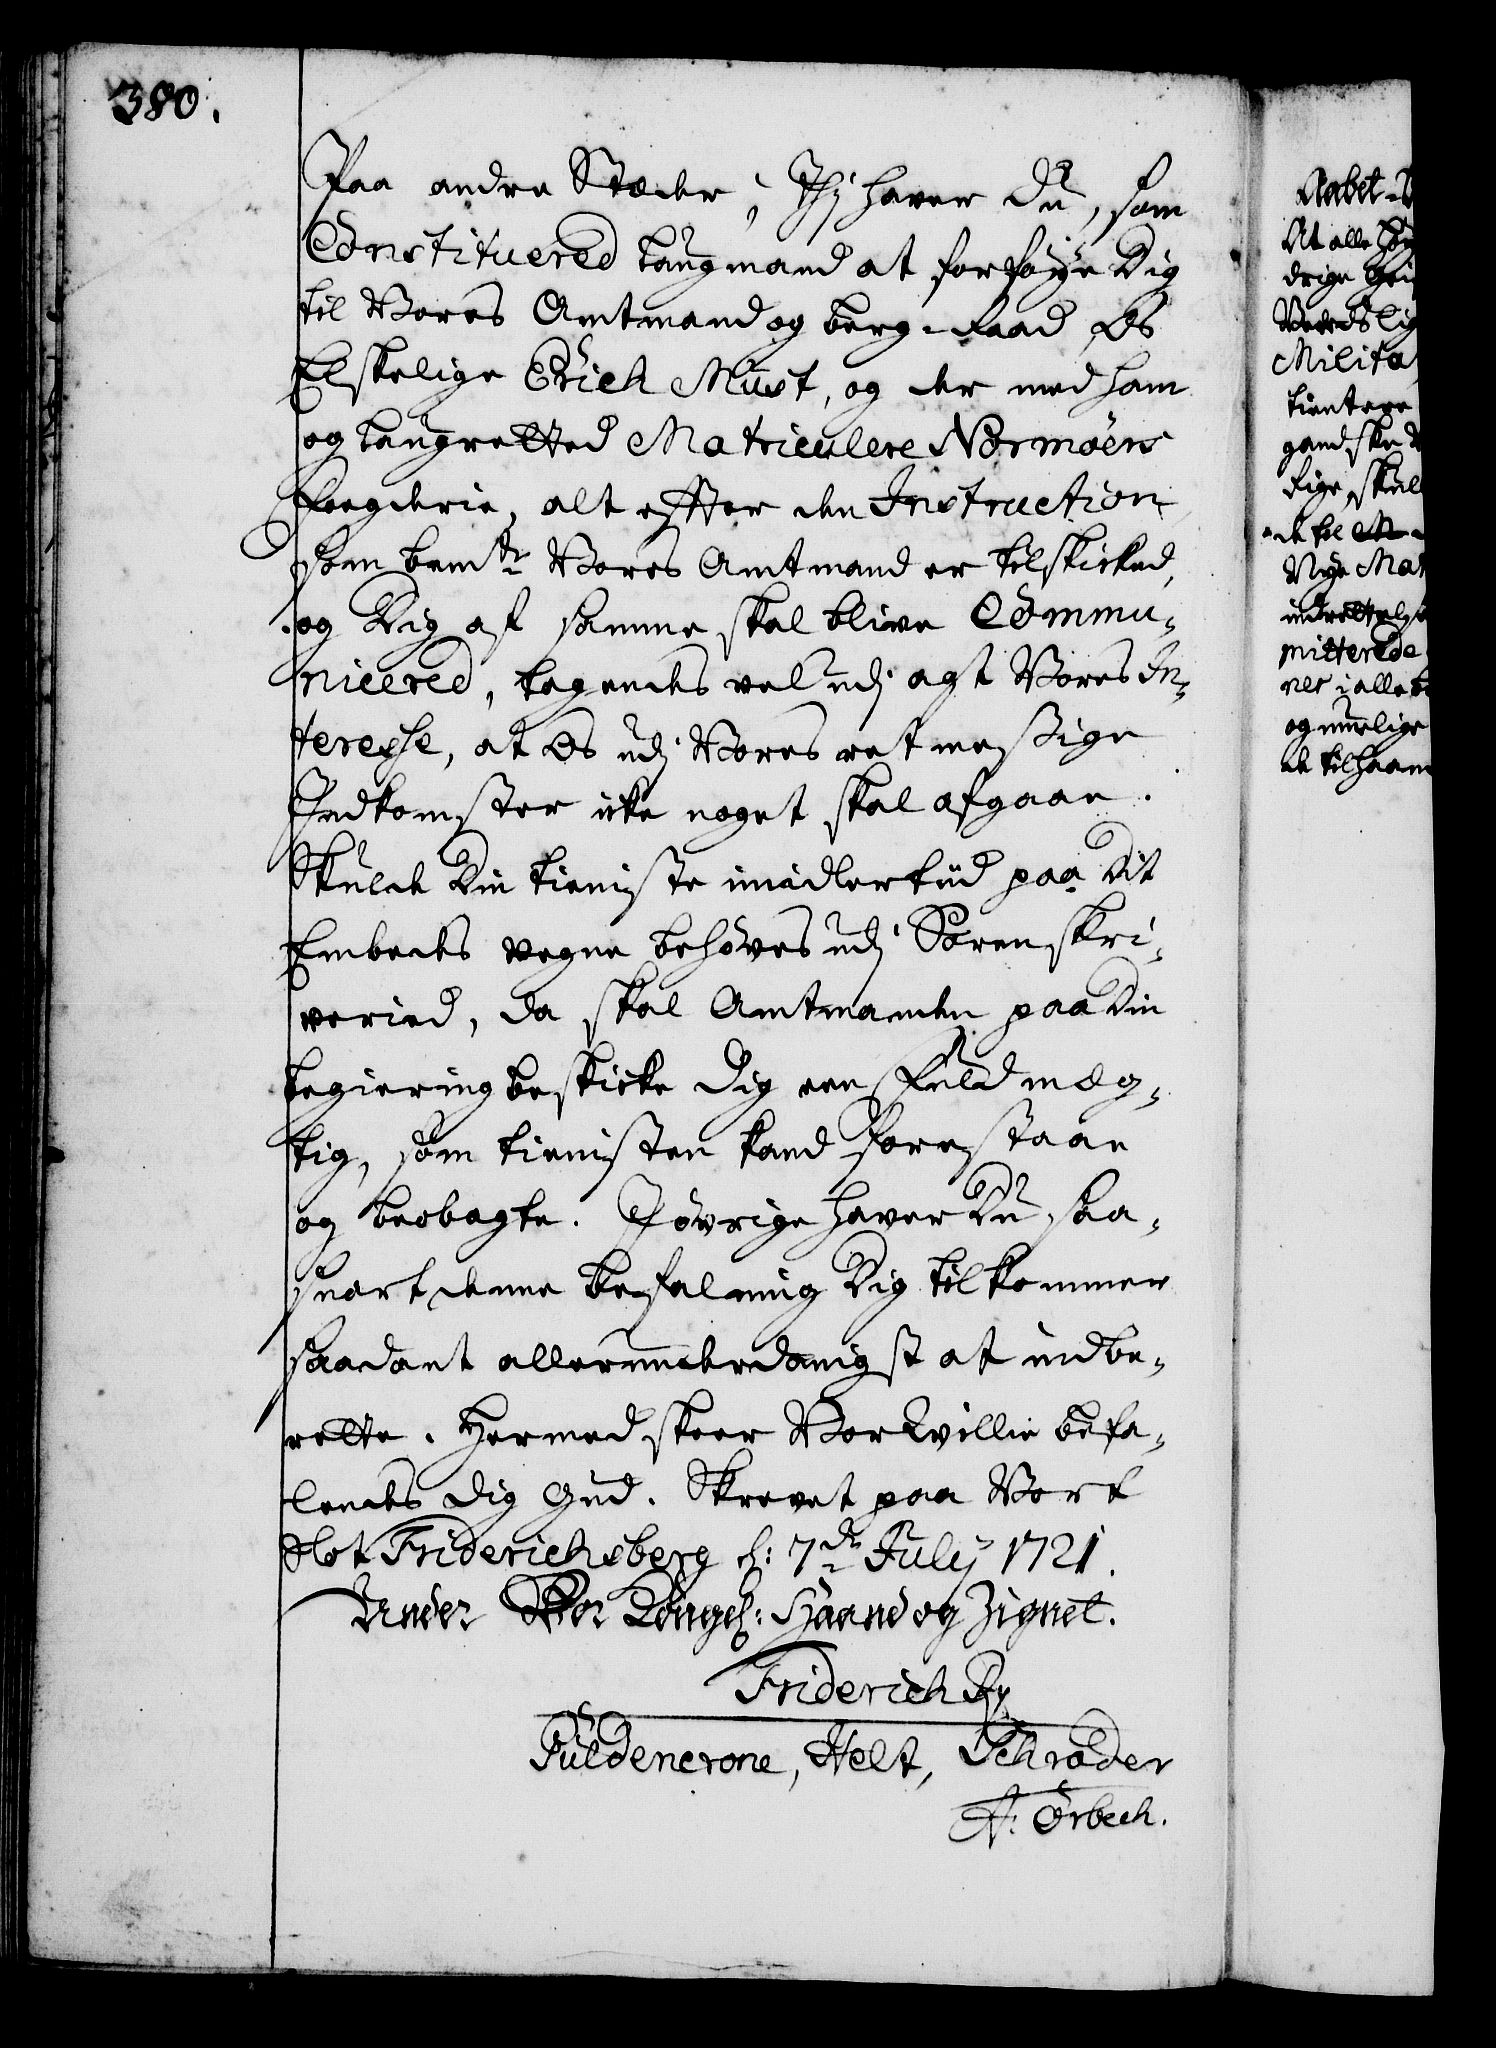 380.
Paa andre Stæder; Thj haver Du, som
Constituered Laugmand at forføye Dig
til Vores Amtmand og berg-Raad Os
Elskelige Erich Must, og der med ham
og Laugretted Matriculere Nordmöers
Fogderie, alt effter den Instruction
som bemte Vores Amtmand er tilskicked,
og Dig af samme skal blive Commu-
nicered, tagendes vel udj agt Vores In-
teresse, at Os udj Vores retmessige
Indkomster icke noget skal afgaae.
Skulde Din tieniste imidlertiid paa Dit
Embedes vegne behöves udj Sorenskri-
veried, da skal Amtmanden paa Din
begiering beskicke Dig een Fuldmæg-
tig, som tienisten kand forestaae
og beobagte. Jøvrige haver Du saa-
snart denne befalning Dig tilkommer
saadant allerunderdanigst at indbe-
rette. Hermed skeer Vor Villie befa-
lendes Dig Gud. Skrevet paa Vort
Slot Friderichsberg d: 7de July 1721.
Under Vor Kongel: Haand og Zignet.
Friderich R
Güldencrone, Helt, Schrøder
A: Ørbech.
Aabet
At alle
drige
Milita
gandske
de til
Nye Mat
mitterede
ner i alle
og muelige
de tilhaan